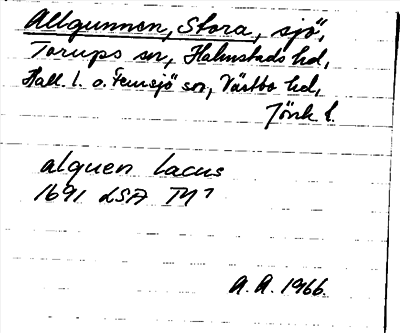 Allgunnen, Stora, sjö,
Torups sn, Halmstads hd,
Hall. l. o. Femsjö sn, Västbo hd,
Jönk l.
alguen lacus
1691 LSA TM7
A. A. 1966